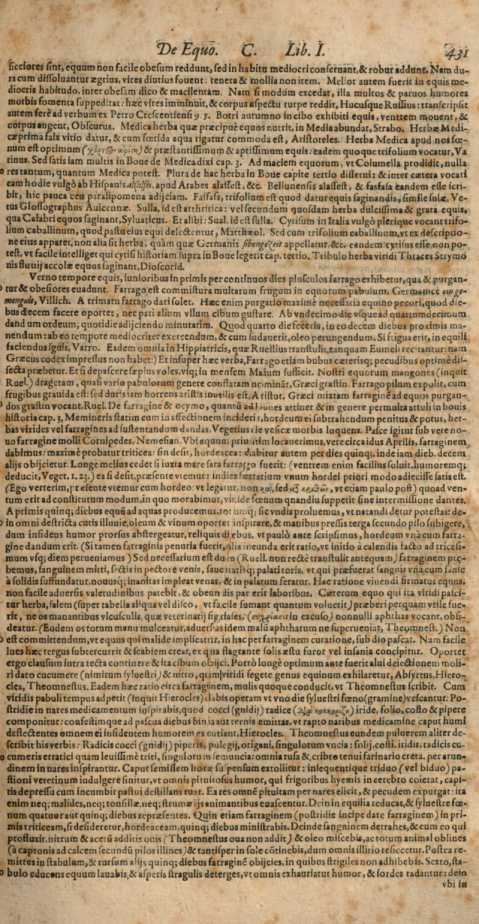 De Equo. C. Lib. I. 431
sicciores sint, equum non facile obesum reddunt, sed in habitu mediocri conseruant, & robur addunt. Nam du-
ra cum dissoluantur ægrius, vires diutius fouent: tenera & mollia non item. Melior autem fuerit in equis me-
diocris habitudo, inter obesum dico & macilentam. Nam si modum excedat, illa multos & paruos humores
morbis fomenta suppeditat: hæc vires imminuit, & corpus aspectu turpe reddit, Hucusque Rullius: transcripsit
autem ferè ad verbum ex Petro Crescentiensi 9 3. Botri autumno in cibo exhibiti equis, ventrem mouent, &
corpus augent, Obscurus. Medica herba quæ præcipuè equos nutrit, in Media abundat, Strabo. Herbæ Medi-
cæ prima sata vitio datur, & cum fœtida aqua rigatur commoda est, Aristoteles. Herba Medica apud nos fœ-
num est optimum & præstantissimum & aptissimum equis: eadem quoque trifolium vocatur, Va
rinus. Sed satis iam multis in Boue de Medica dixi cap. 3. Ad maciem equorum, vt Columella prodidit, nulla
res tantum, quantum Medica potest. Plura de hac herba in Boue capite tertio disserui: & inter cætera vocari
eam hodie vulgò ab Hispanis apud Arabes alasfest, &c. Bellunensis alasfest, & fasfasa eandem esse scri-
bit, hic pauca ceu paralipomena adijciam. Fasfasa, trifolium est quod datur equis saginandis, simile
tus Glossographus Auicennæ. Sulla, id est arthritica: vel secundum quosdam herba dulcissima & grata equis,
qua Calabri equos saginant, Syluaticus. Et alibi: Sual. id est sulla. Cytisum in Italia vulgò plerique vocant trifo-
lium caballinum, quod pastu eius equi delectentur, Matthæol. Sed cum trifolium caballinum, vt ex descriptio-
ne eius apparet, non alia sit herba, quàm quæ Germanis appellatur, &c. eandem cytisus esse non po-
test, vt facile intelliget qui cytisi historiam supra in Boue legerit cap. tertio. Tribulo herba viridi Thraces Strymo
nis fluuij accolæ equos saginant, Dioscorid.
Verno tempore equis, iunioribus in primis per continuos dies plusculos farrago exhibetur, qua & purgan-
tur & obesiores euadunt. Farrago est commistura multarum frugum in equorum pabulum, Germanicè
Villich. A trimatu farrago dari solet. Hæc enim purgatio maximè necessaria equino pecori, quod die-
bus decem facere oportet, nec pati alium vllum cibum gustare. Ab vndecimo die vsque ad quartumdecimum
dand um ordeum, quotidie adijciendo minutatim. Quod quarto die feceris, in eo decem diebus proximis ma-
nendum: ab eo tempore mediocriter exercendum, & cum sudauerit, oleo perungendum. Si frigus erit, in equili
faciendus ignis, Varro. Eadem omnia in Hippiatricis, quæ Ruellius transtulit, tanquam Eumeli recitantur: nam
Græcus codex impressus non habet: Et insuper hæc verba, Farrago etiam bubus cæterisq; pecudibus optimè di-
secta præbetur. Et si depascere sæpius voles, vsq; in mensem Maium sufficit. Nostri equorum mangones (inquit
Ruel.) dragetam, quasi vario pabulorum genere constatam nominant, Græci grastin. Farrago pilum expolit, cum
frugibus grauida est: sed duris tum horrens aristis inutilis est, Aristot. Græci mitatam farraginem ad equos purgan-
dos grastin vocant. Ruel. De farragine & ocymo, quamdiu ad boues attinet & in genere permulta attuli in bouis
historia cap. 3. Memineris statim cum in affectionem incideris, hordeum ei subtrahendum penitus & potus, her-
bas virides vel farragines ad sustentandum dandas, Vegetius: ie vesicæ morbis loquens. Pasce igitur sub vere no-
uo farragine molli Cornipedes, Nemesian. Vbi equum primùm locauerimus, vere circa idus Aprilis, farraginem
dabimus: maximè probatur triticea: sin desit, hordeacea: dabitur autem per dies quinq; inde iam dieb. decem
alijs obijcietur. Longè melius cedet si iuxta mare sata farrago fuerit: (ventrem enim facilius soluit, humoremq;
deducit, Veget. 1. 23.) ea si desit, præsente vtemur: index satiatium vnum hordei priori modo adiecisse satis est.
(Ego verterim, præsente vtemur cum hordeo: vt legatur, vt etiam paulo post) quod ven-
tum erit ad constitutum modum, in quo morabimur, viride fœnum quandiu suppetit sine intermissione dantes.
A primis quinq; diebus equũ ad aquas producemus, totumq; sic vndis proluemus, vt natandi detur potestas: de
in omni destricta cutis illunie, oleum & vinum oportet inspirare, & manibus pressis terga secundo pilo subigere,
dum insidens humor prorsus abstergeatur, reliquis dieb. vt paulò ante scripsimus, hordeum vnà cum farra-
gine dandum erit. (Si tamen farraginis penuria fuerit, alia ineunda erit ratio, vt initio à calendis facto ad trices-
mum vsq; diem perueniamus) Sed necessarium est dum (Ruell. non rectè transtulit antequam) farraginem præ-
bemus, sanguinem mitti, sectis in pectore venis, faucium q; palati caueis, vt qui præfuerat sanguis vnà cum fame
à solidis suffundatur, nouusq; inanitas impleat venas, & in palatum feratur. Hac ratione viuendi firmatus equus,
non facilè aduersis valetudinibus patebit, & obeundis par erit laboribus. Cæterum equo qui ita viridi pasci-
tur herba, salem (super tabella aliqua vel disco, vt facile sumant quantum voluerit) præberi perquam vtile fue-
rit, ne os manantibus vlcusculis, quæ veterinarij figchlates, (excuso) nonnulli aphthas vocant, obsi-
deatur. (Eodem os totum manu mulceatur, aduersus idem malũ aphtharum ne superueniat, Theomnest.) Non
est committendum, vt equis qui malide implicantur, in hac per farraginem curatione, sub dio pascat. Nam facile
lues hæc tergus subtercurrit & scabiem creat, ex qua flagrante solis æstu furor vel insania concipitur. Oportet
ergo clausum intra tecta continere & ita cibum obijci. Porrò longè optimum ante fuerit alui deiectionem moli-
ri dato cucumere (nimirum syluestri) & nitro, quin viridi segete genus equinum exhilaretur, Absyrtus, Hiero-
cles, Theomnestus. Eadem hæc ratio circa farraginem, mulis quoque conducit, vt Theomnestus scribit. Cum
viridis pabuli tempus adpetit (inquit Hierocles) dabis operam vt vno die syluestri fœno (gramine) vescantur. Po-
stridie in nares medicamentum inspirabis, quod cocci (gnidij) radice iride, folio, costo & pipere
componitur: confestimque ad pascua diebus bin is aut ternis emittas, vt rapto naribus medicamine caput huml
deslectentes omnem ei insidentem humorem excutiant, Hierocles. Theomnestus eundem puluerem aliter de-
scribit his verbis: Radicis cocci (gnidij) piperis, pulegij, origani, singulotum vncia: folij, costi, iridis, radicis cu-
cumeris erratici quàm leuissimè triti, singulotum semuncia: omnia tusa, & cribro tenui farinario creta, per arun-
dinem in nares inspirantur. Caput semissem horæ suspensum extollitur: insequentique triduo (vel biduo) pa-
stioni vererinum indulgere sinitur, vt omnis pituitosus humor, qui frigoribus hyemis in cerebro coierat, capi-
tis depressu cum incumbit pastui destillans ruat. Ea res omnẽ pituitam per nares elicit, & pecudem expurgat: ita
enim neq; malides, neq; tonsillæ, neq; strumæ ijs animantibus euascentur. Dein in equilia reducas, & syluestre fœ-
num quatuor aut quinq; diebus repræsentes. Quin etiam farraginem (postridie incipe date farraginem) in pri-
mis triticeam, si desideretur, hordeaceam, quinq; diebus ministrabis. Deinde sanguinem detrahes, & cum eo qui
profluxit, nitrum & acerũ additis ouis (Theomnestus oua non addit) & oleo miscebis, ac totum animal oblines
(à capronis ad calcem secundũ pilor illines) & tantisper in sole cõtinebis, dum omnis illitio resiccetur. Postea re-
mittes in stabulam, & rursum alijs quinq; diebus farraginẽ obijcies, in quibus strigiles non adhibebis. Sexto, sta-
bulo educens equum lauabis, & asperis stragulis deterges, vt omnis exhauriatur humor, & sordes radantur: dein
vbi in